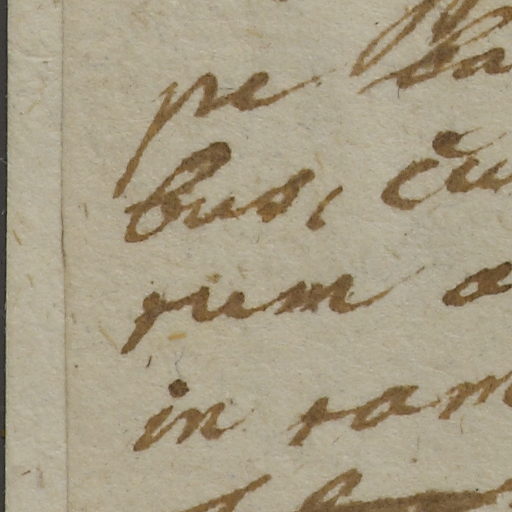 pe ba
bus, cu
rum a
in ram